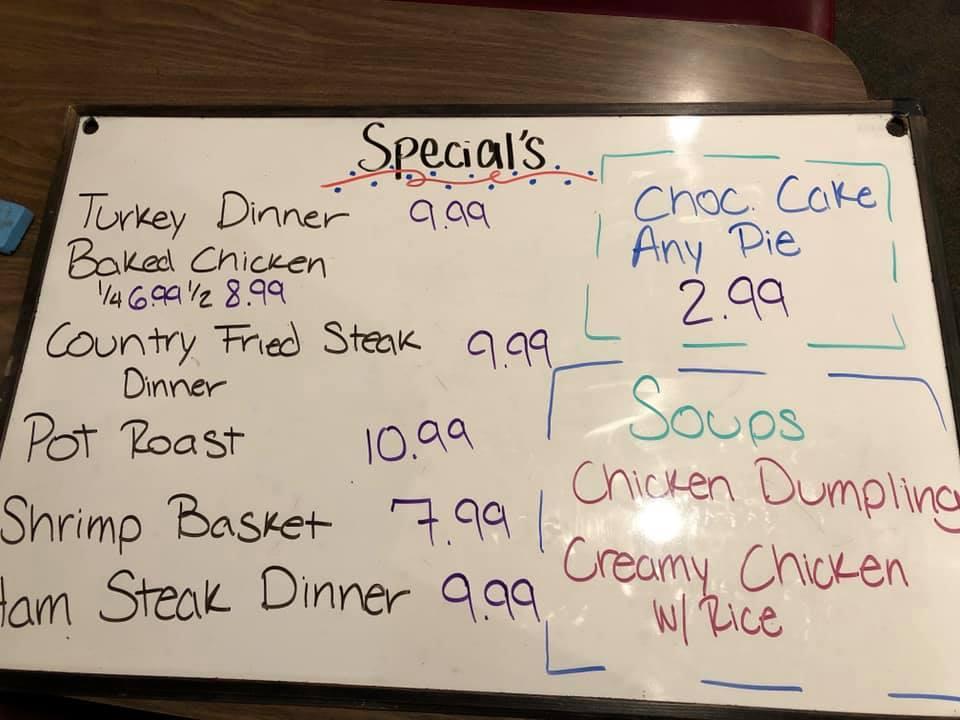 Special's
Turkey Dinner 9.99
Baked Chicken
1/4 6.99 1/2 8.99
Country Fried Steak 9.99
Dinner
Pot Roast 10.99
Shrimp Basket 7.99
Ham Steak Dinner 9.99
Choc. Cake
Any Pie
2.99
Soups
Chicken Dumpling
Creamy Chicken
W/ Rice